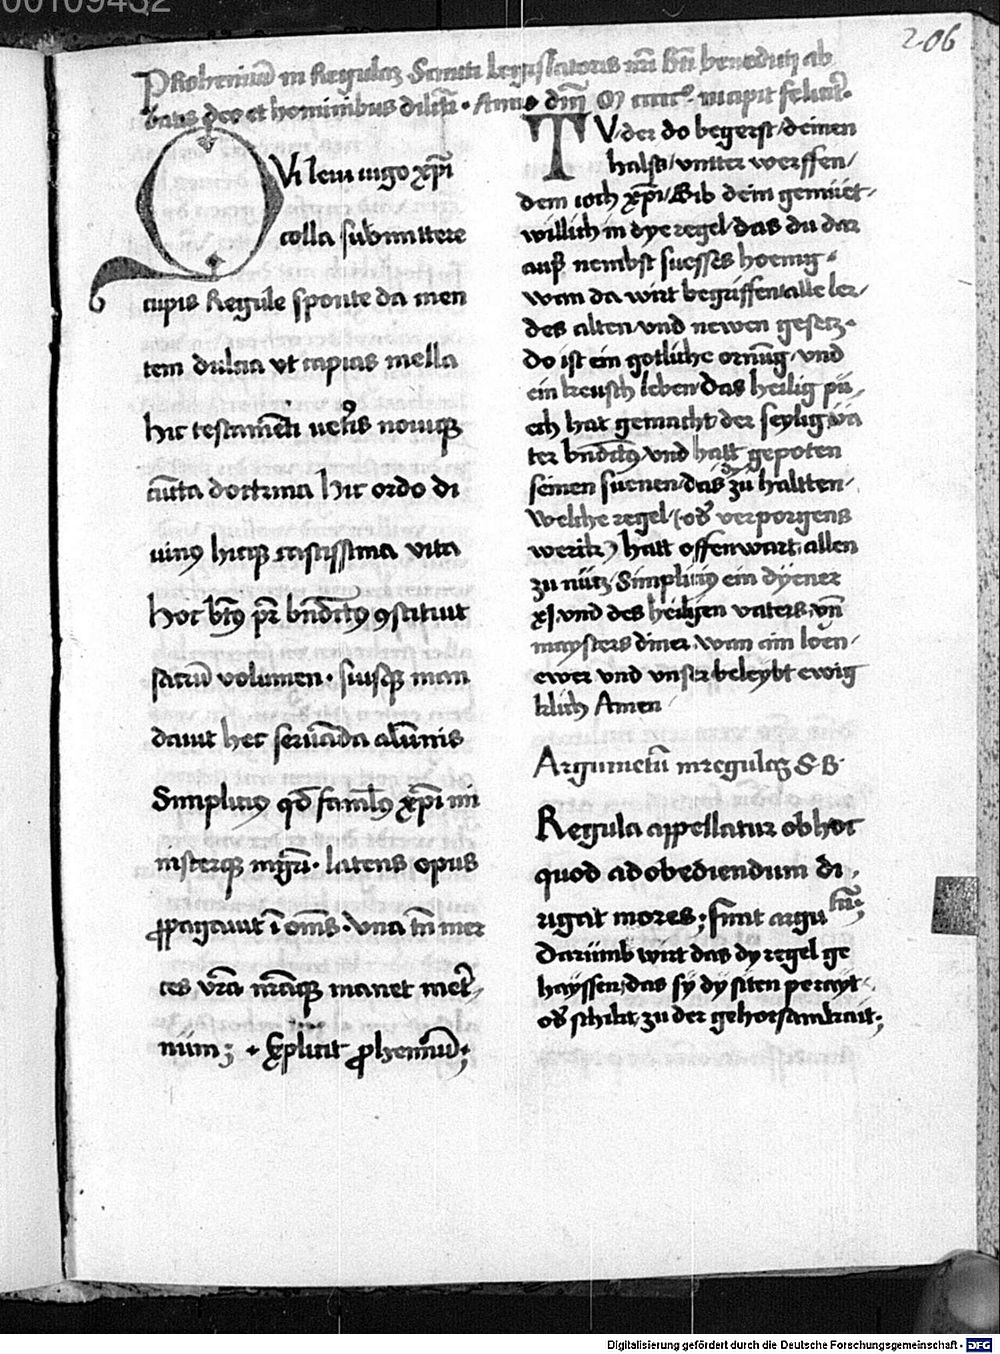 206
Prohemiu᷑ in Regulaꝝ Sancti legislatoris nr̄i Bt̄i benedicti ab
batis deo et hominibus dilc̄ti · Anno dm̄i incipit felicit᷑·
QVi leui iugo xp̄i
colla submittere
cupis Regule sponte da men
tem dulcia vt capias mella
hic testamēti uet᷑is nouiqꝫ
cūcta doctrina hic ordo di
uinꝰ hicqꝫ castissima vita
Hoc bt̄ꝰ pr̄ bn̄dictꝰ ꝯstituit
sacrū volumen · suisqꝫ man
dauit hec seruāda alūnis
Simpliciꝰ qd̄ famulꝰ xp̄i mi
nisterqꝫ mgr̄i · latens opus
ꝓpagauit ī om̄s · Vna tn̄ mer
ces vr̄a nr̄aqꝫ manet met᷑
num; · Explicit ꝓhemiūd;
TV der do begerst / deinen
halss / vntter werffen /
dem ioch xp̄i / Gib dein gemüet·
willich in dye regel / das du dar
auß nembst suesses hoenig ·
wan da wirt begriffen alle ler /
des alten vnd newen gesetz ·
do ist ein gotliche ornūg / vnd
ein keusch leben Das heilig pü,
ech hat gemacht der seylig va
ter bn̄dictꝰ / vnd hatt gepoten
seinen suenen / das zu haltten ·
Welche regel / (od᷑ verporgens
werck) hatt offenwart allen
zu nütz / Simpliciꝰ ein dyener
xp̄i / vnd des heiligen vaters / vn̄
maysters diner / wan ein loen /
ewer vnd vnser beleybt ewig
klich Amen
Argumētū in regulaꝝ S· B·
Regula appellatur ob hoc
quod ad obediendum di,
rigat mores; finit argu
tū;
Darumb wirt das dy regel ge
hayssen, das sy dy siten
od᷑ schikt, zu der gehorsamkait;
Digitalisierung gefördert durch die Deutsche Forschungsgemeinschaft · DFG